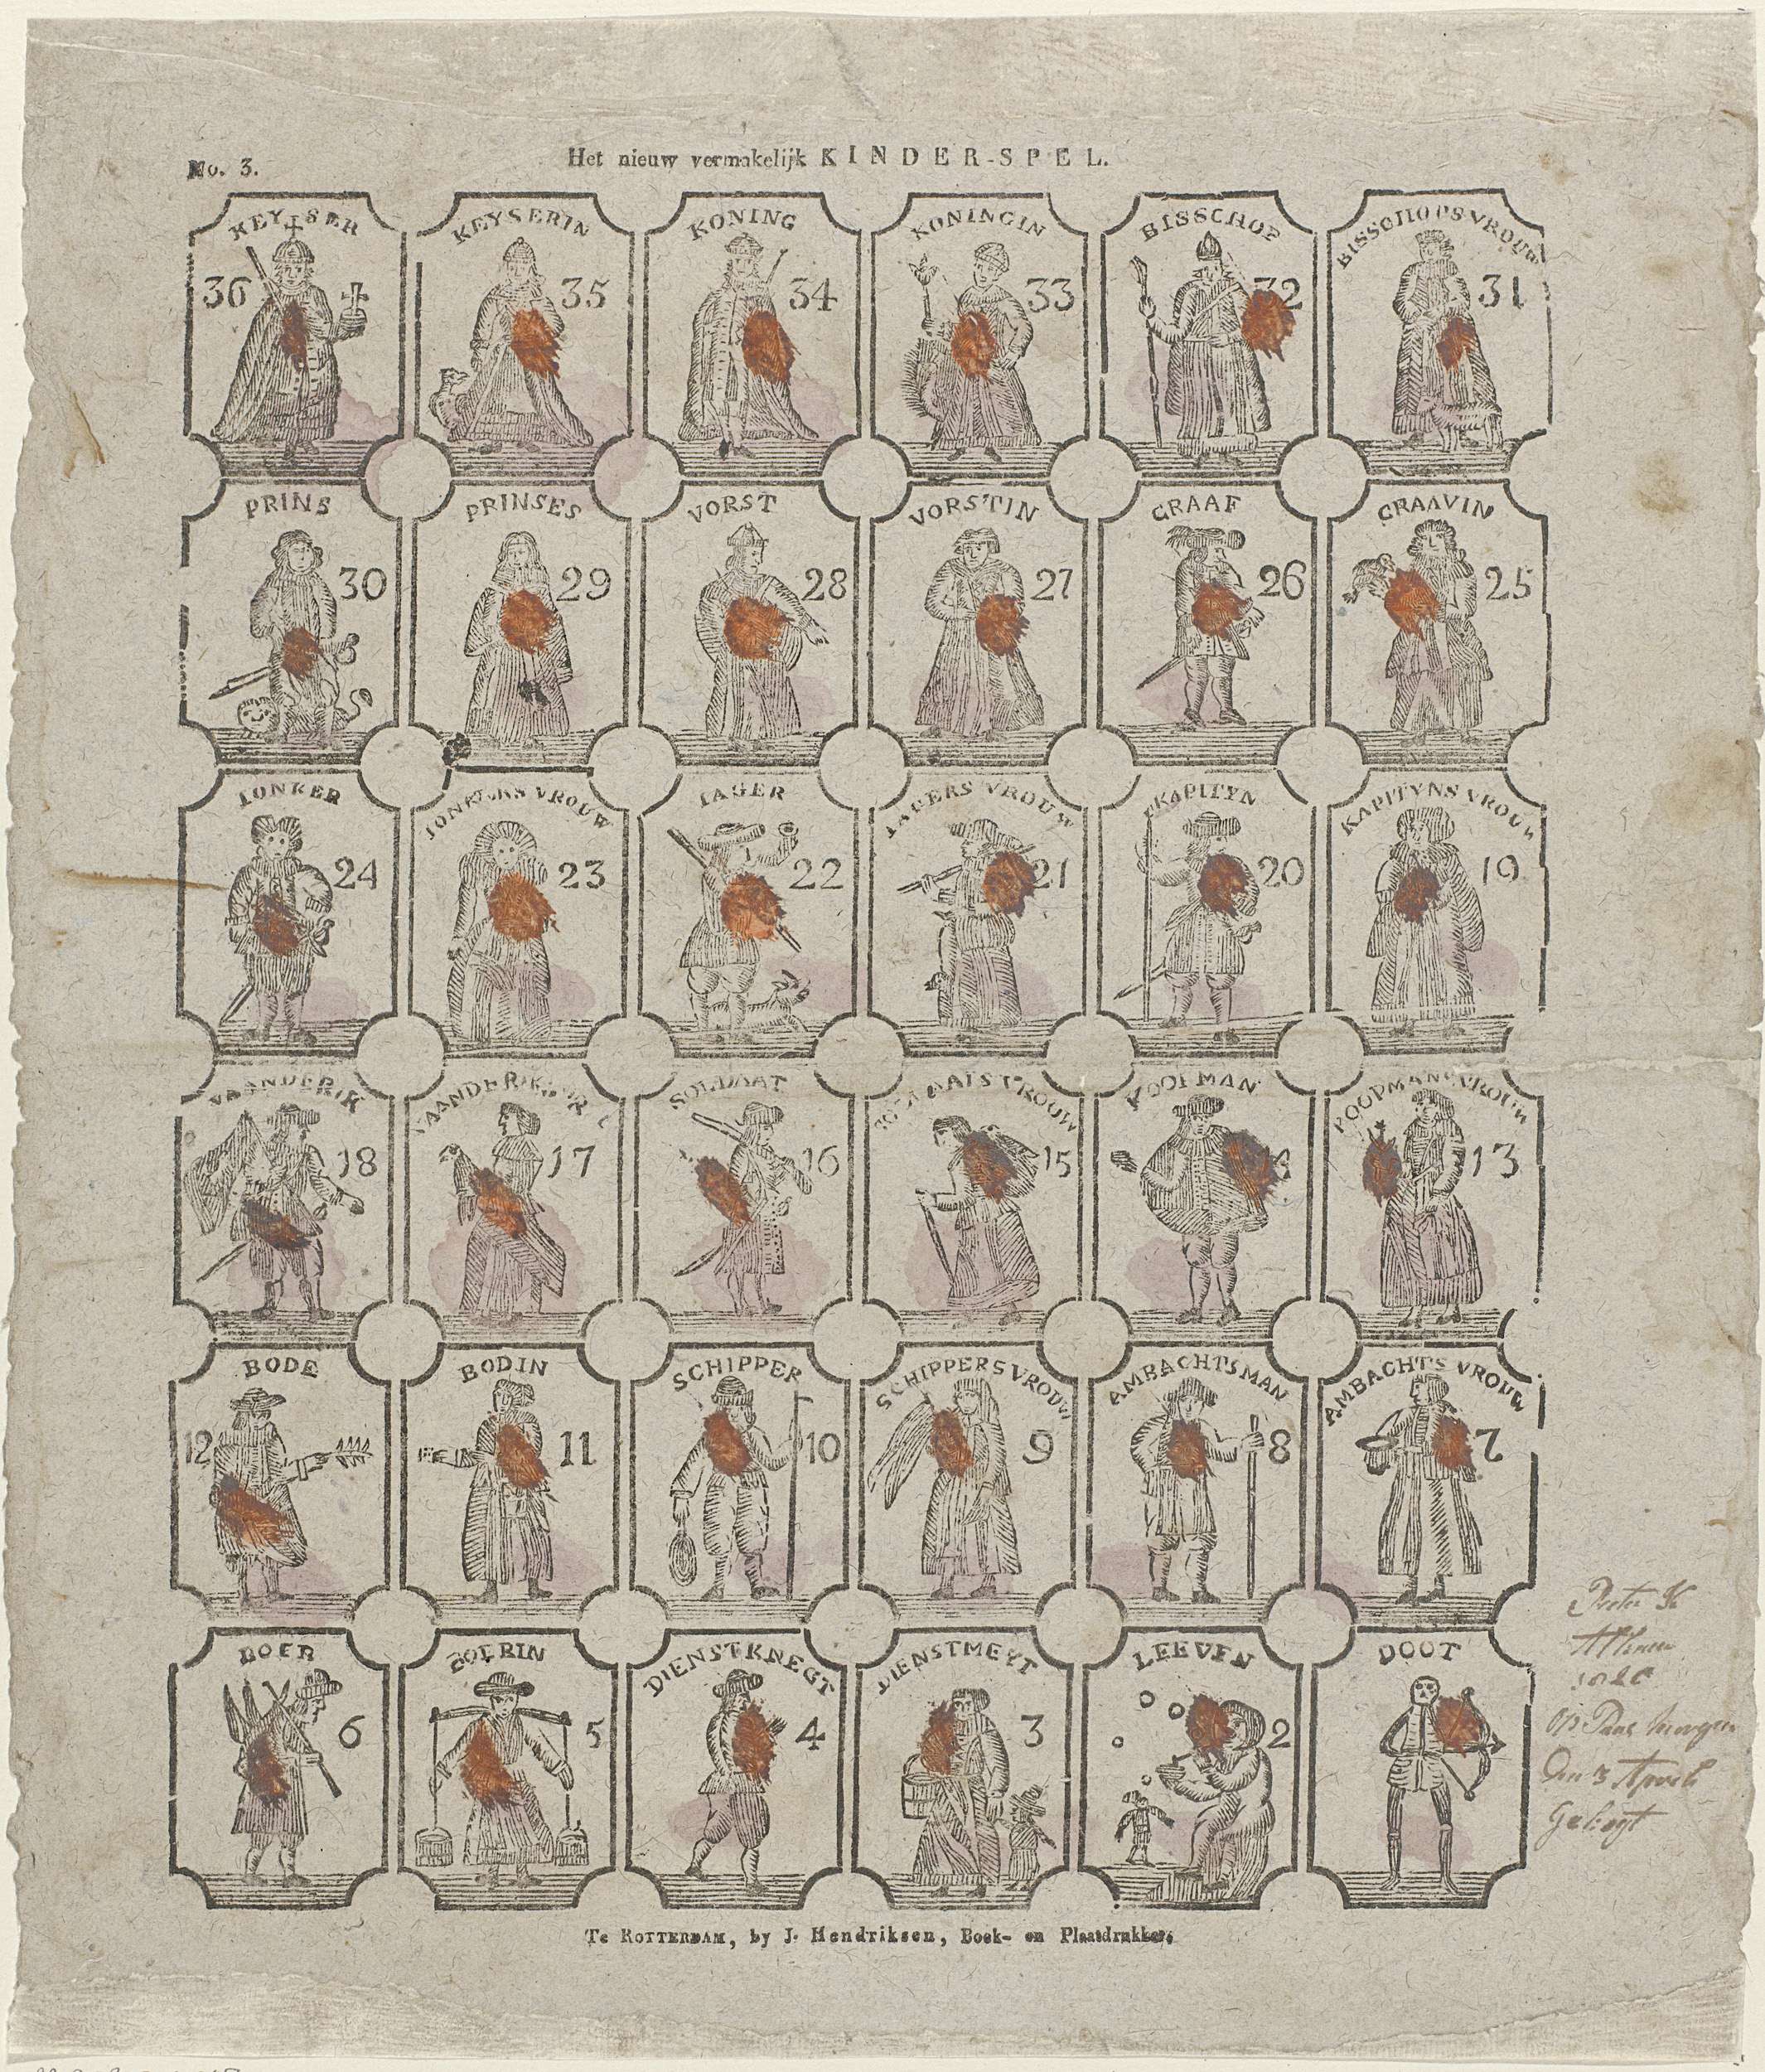 No. 3.
Het nieuw vermakelijk KINDER-SPEL.
KEYSER
36
KEYSERIN
35
KONING
34
KONINGIN
33
BISSCHOP
32
BISSCHOPS VROUW
31
PRINS
30
PRINSES
29
VORST
28
VORSTIN
27
GRAAF
26
GRAAVIN
25
IONKER
24
IONKERS VROUW
23
IAGER
22
IAGERS VROUW
21
KAPITYN
20
KAPITYNS VROUW
19
VAANDERIK
18
17
SOLDAAT
16
VROUW
15
KOOPMAN
KOOPMANS VROUW
13
BODE
12
BODIN
11
SCHIPPER
10
SCHIPPERS VROUW
9
AMBACHTSMAN
8
AMBACHTS VROUW
7
BOER
6
BOERIN
5
DIENSTKNEGT
4
DIENSTMEYT
3
LEEVEN
2
DOOT
Te ROTTERDAM, by J. Hendriksen, Boek- en Plaatdrukker.
Pieter K
op Paas morgen
Den 3 April